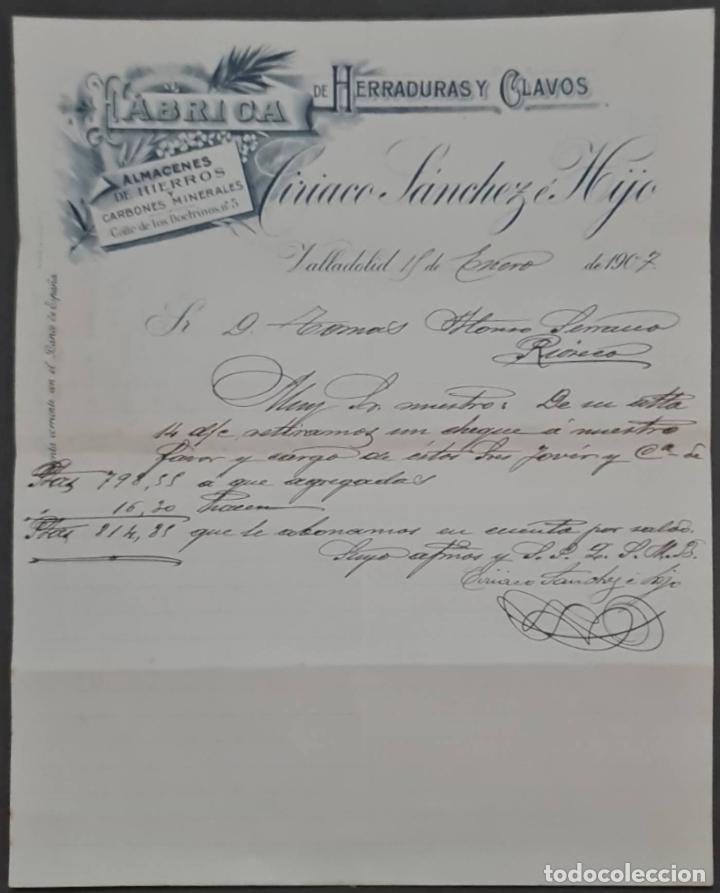 FÁBRICA DE HERRADURAS Y CLAVOS
ALMACENES
DE HIERROS
Y
CARBONES MINERALES
Calle de los Doctrinos, nº 5
Ciriaco Sánchez é Hijo
Valladolid 15 de Enero de 1907
Sr. D. Tomas Alonso Serrano
Rioseco
Muy Sr. nuestro: De su atta
14 d/c retiramos un cheque á nuestro
favor y cargo de éstos Sres Jover y Cª de
Ptas 798,55 a que agregadas
16,30 hacen
Ptas 814,85 que le abonamos en cuenta por saldo.
Suyo afmos y S. S. Q. S. M. B.
Ciriaco Sanchez é hijo
cuenta corriente en el Banco de España
todocoleccion.net